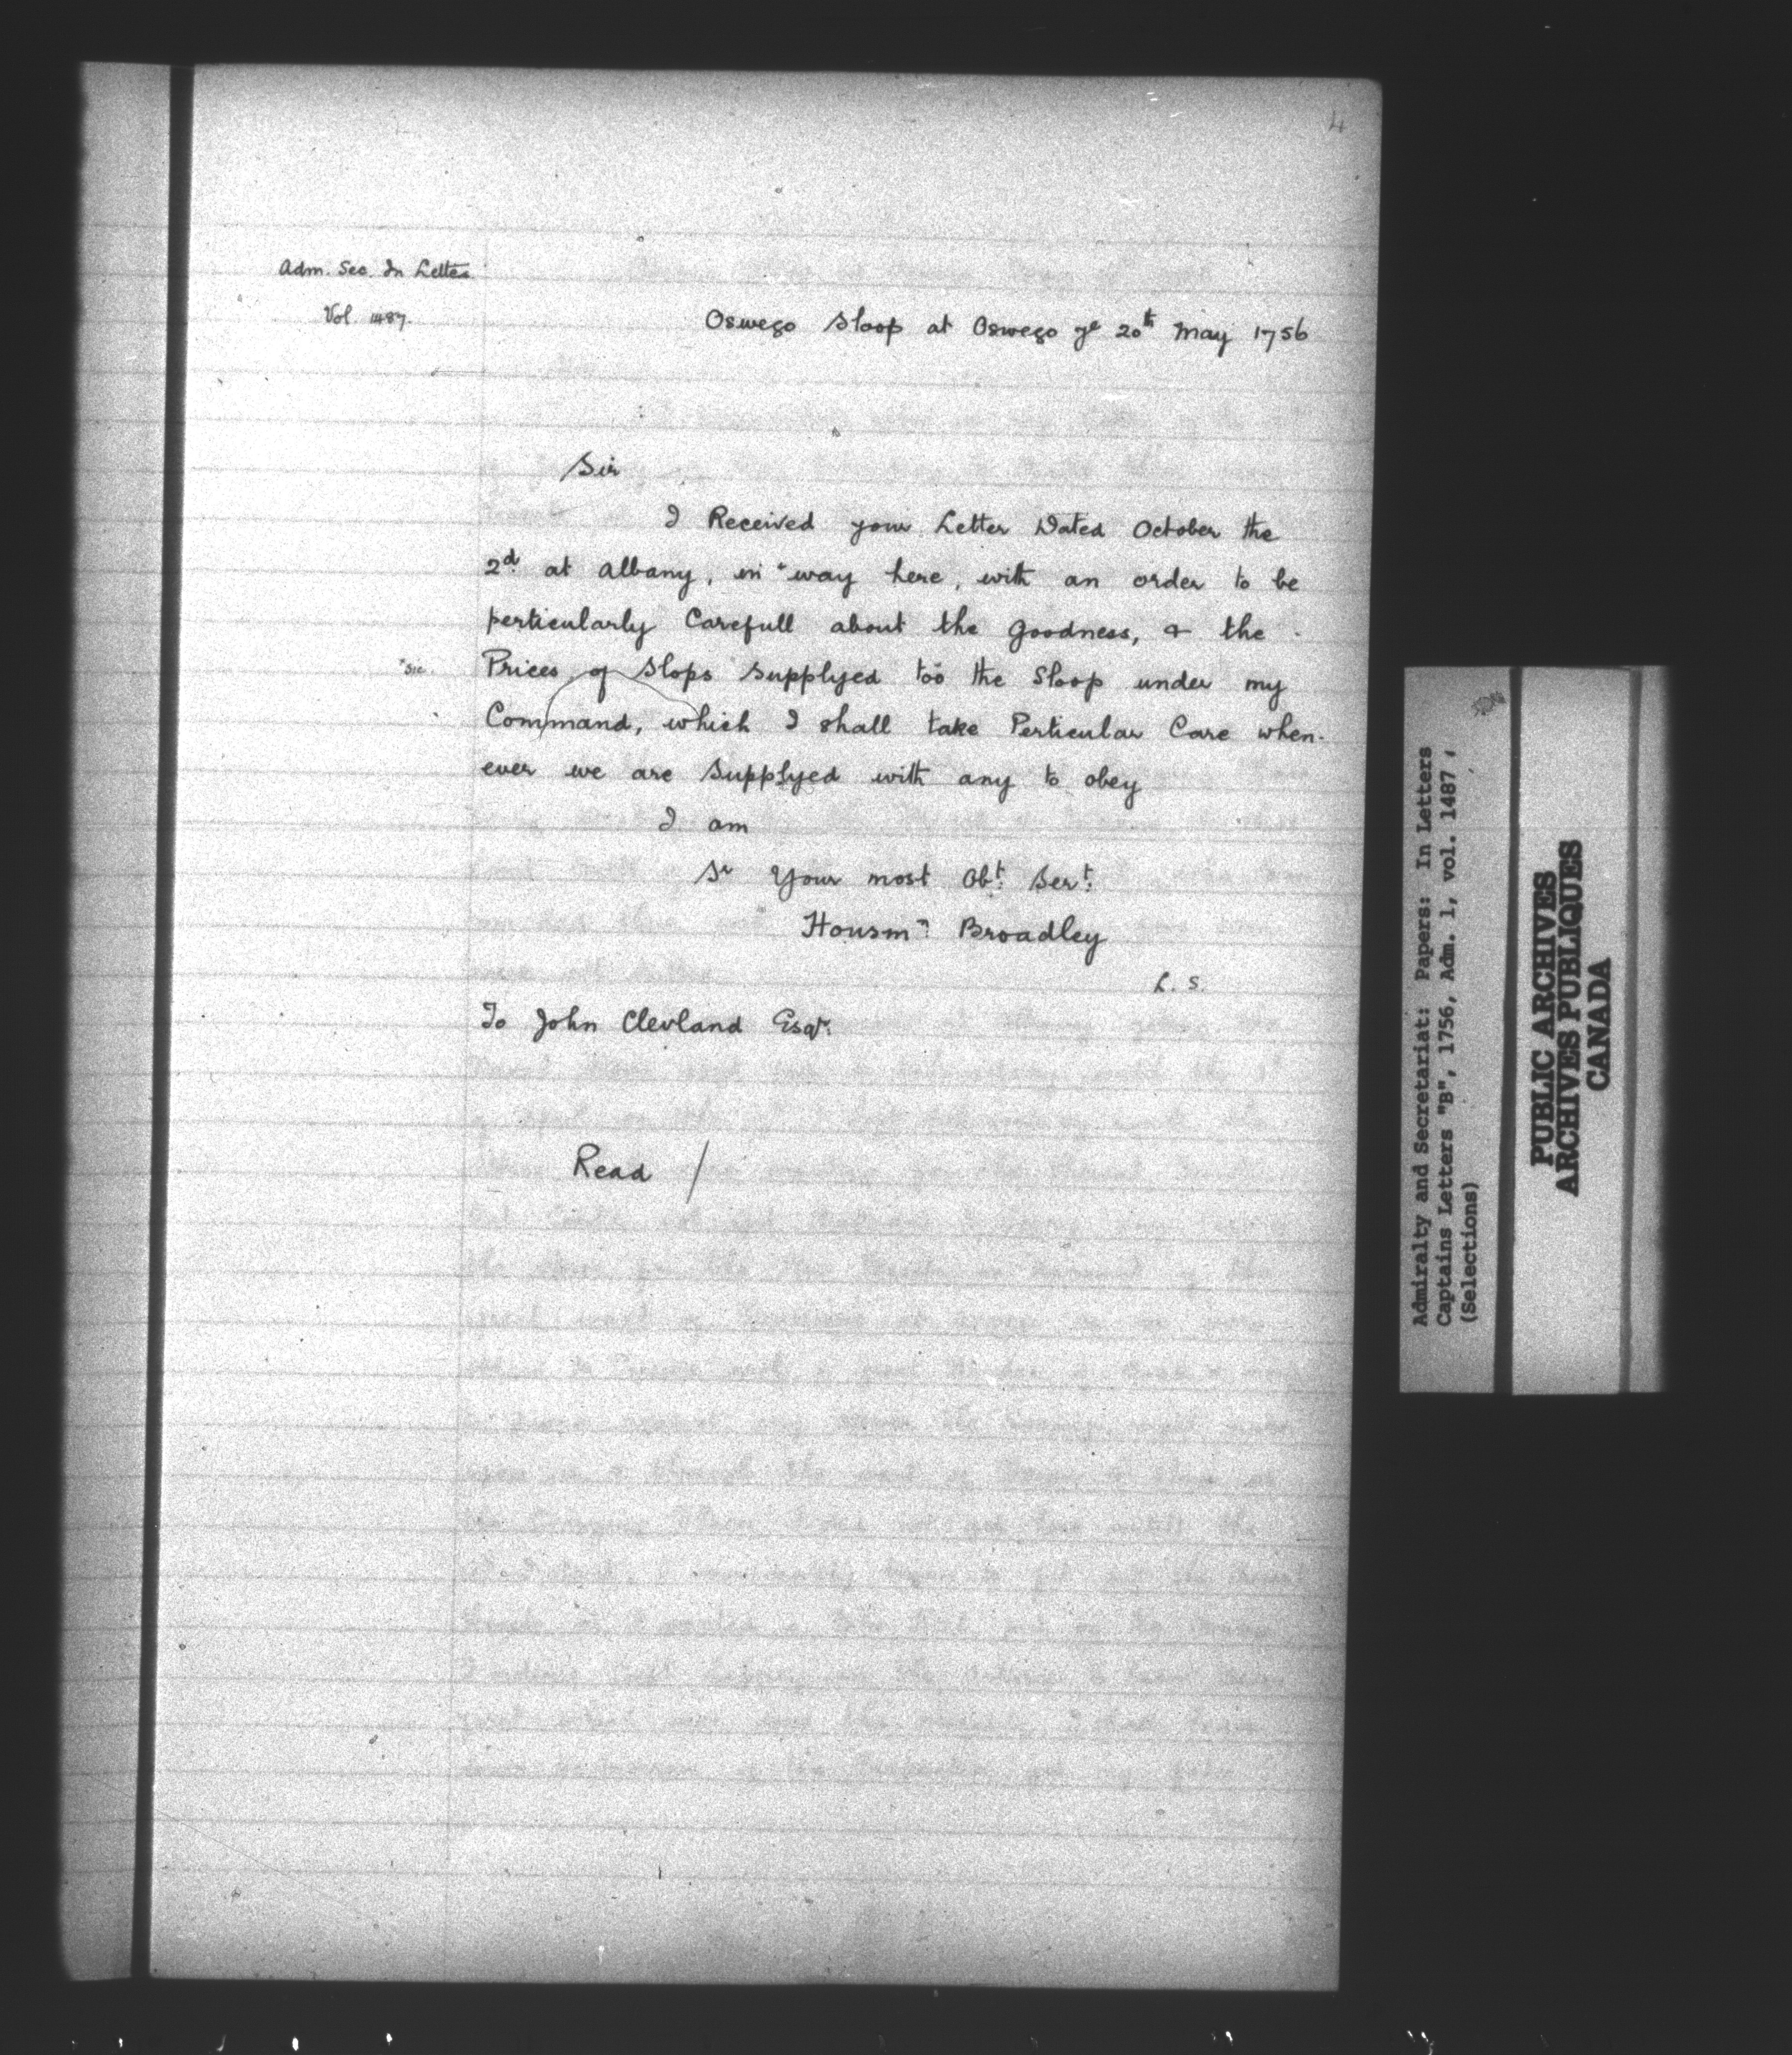 4
Adm. Sec. In Letters
Vol. 1487.
Oswego Sloop at Oswego ye 20th May 1756
Sir
I Received your Letter Dated October the
2d at Albany, in *way here, with an order to be
perticularly Carefull about the Goodness, & the
*Sic. Prices of Slops Supplyed too the Sloop under my
Command, which I shall take Perticular Care when-
ever we are Supplyed with any to obey
I am
Sr Your most Obt: Sert:
Housmn: Broadley
L. S.
To John Clevland Esqr:
Read /
Admiralty and Secretariat: Papers: In Letters
Captains Letters "B", 1756, Adm. 1, vol. 1487,
(Selections)
PUBLIC ARCHIVES
ARCHIVES PUBLIQUES
CANADA